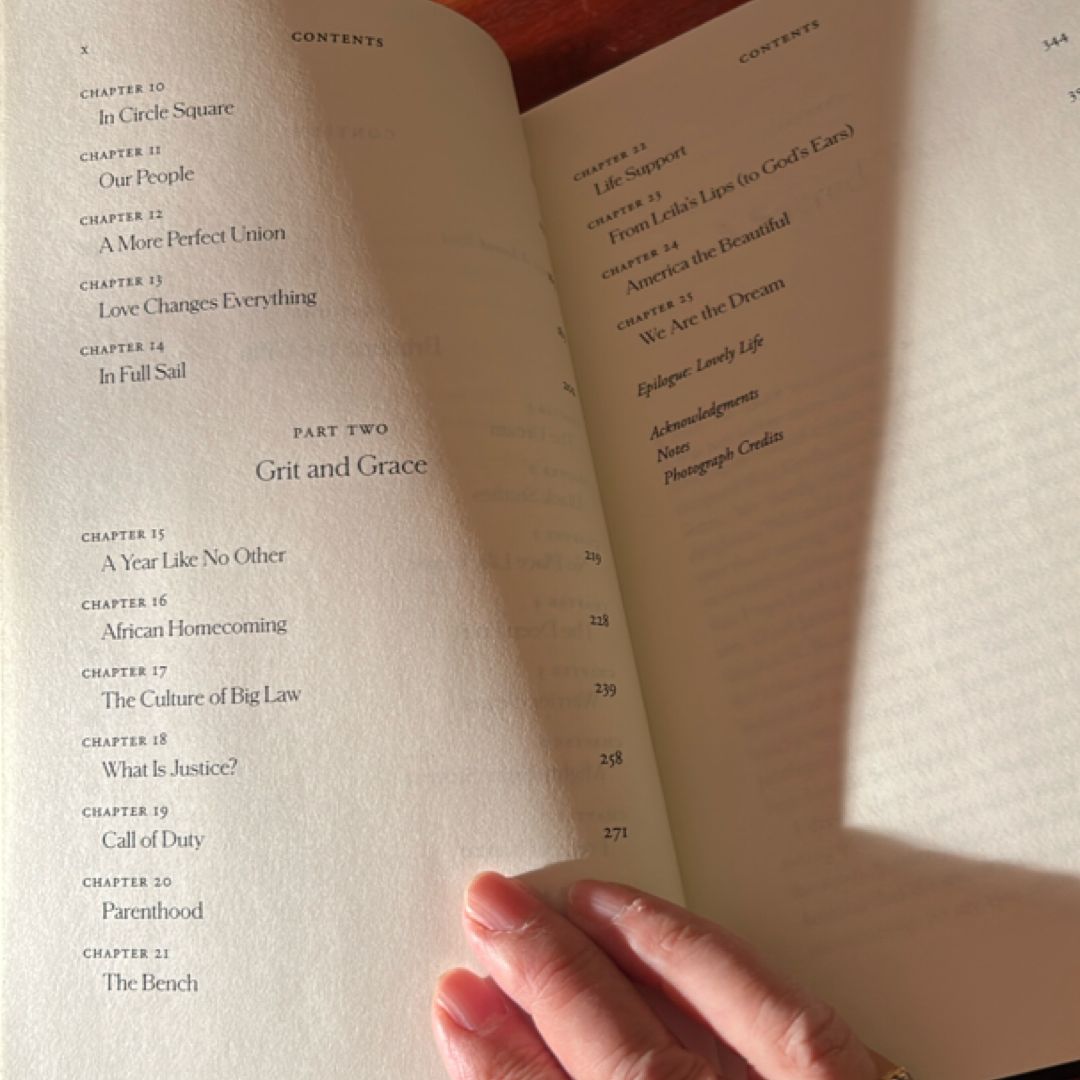 x
CONTENTS
CHAPTER 10
In Circle Square
CHAPTER 11
Our People
CHAPTER 12
A More Perfect Union
CHAPTER 13
Love Changes Everything
CHAPTER 14
In Full Sail
PART TWO
Grit and Grace
CHAPTER 15
A Year Like No Other 219
CHAPTER 16
African Homecoming 228
CHAPTER 17
The Culture of Big Law 239
CHAPTER 18
What Is Justice? 258
CHAPTER 19
Call of Duty 271
CHAPTER 20
Parenthood
CHAPTER 21
The Bench
CONTENTS
CHAPTER 22
Life Support 344
CHAPTER 23
From Leila's Lips (to God's Ears)
CHAPTER 24
America the Beautiful
CHAPTER 25
We Are the Dream
Epilogue: Lovely Life
Acknowledgments
Notes
Photograph Credits